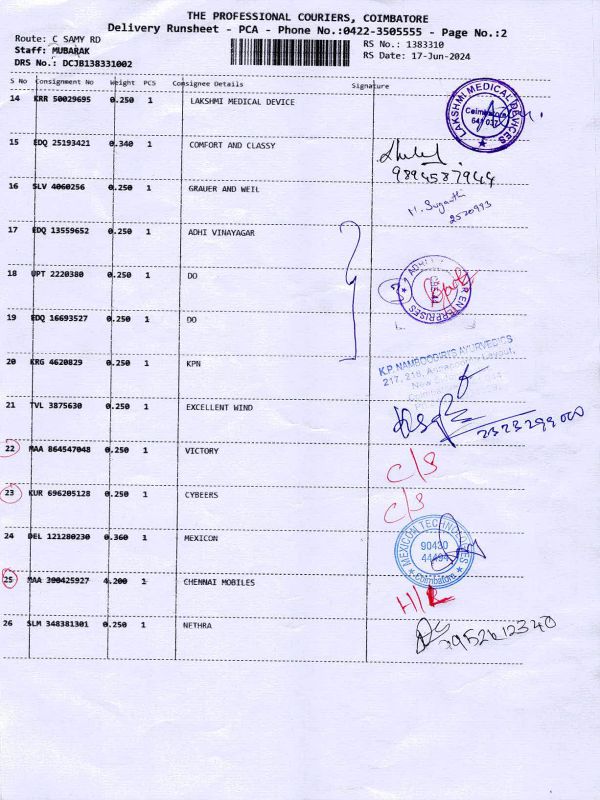 THE PROFESSIONAL COURIERS, COIMBATORE
Delivery Runsheet - PCA - Phone No.:0422-3505555 - Page No.:2
Route: C SAMY RD
RS No.: 1383310
Staff: MUBARAK
RS Date: 17-Jun-2024
DRS No.: DCJB138331002
S No Consignment No Weight PCS Consignee Details Signature
14 KRR 50029695 0.250 1 LAKSHMI MEDICAL DEVICE
LAKSHMI MEDICAL DEVICES
Coimbatore
15 EDQ 25193421 0.340 1 COMFORT AND CLASSY
9894587944
16 SLV 4060256 0.250 1 GRAUER AND WEIL
2520993
17 EDQ 13559652 0.250 1 ADHI VINAYAGAR
18 UPT 2220380 0.250 1 DO
ENTERPRISES
19 EDQ 16693527 0.250 1 DO
20 KRG 4620829 0.250 1 KPN
K.P. NAMBOODIRI'S AYURVEDICS
21 TVL 3875630 0.250 1 EXCELLENT WIND
22 MAA 864547048 0.250 1 VICTORY
C/S
23 KUR 696205128 0.250 1 CYBEERS
C/S
24 DEL 121280230 0.360 1 MEXICON
MEXICON TECHNOLOGIES
90430
Coimbatore
25 MAA 300425927 4.200 1 CHENNAI MOBILES
26 SLM 348381301 0.250 1 NETHRA